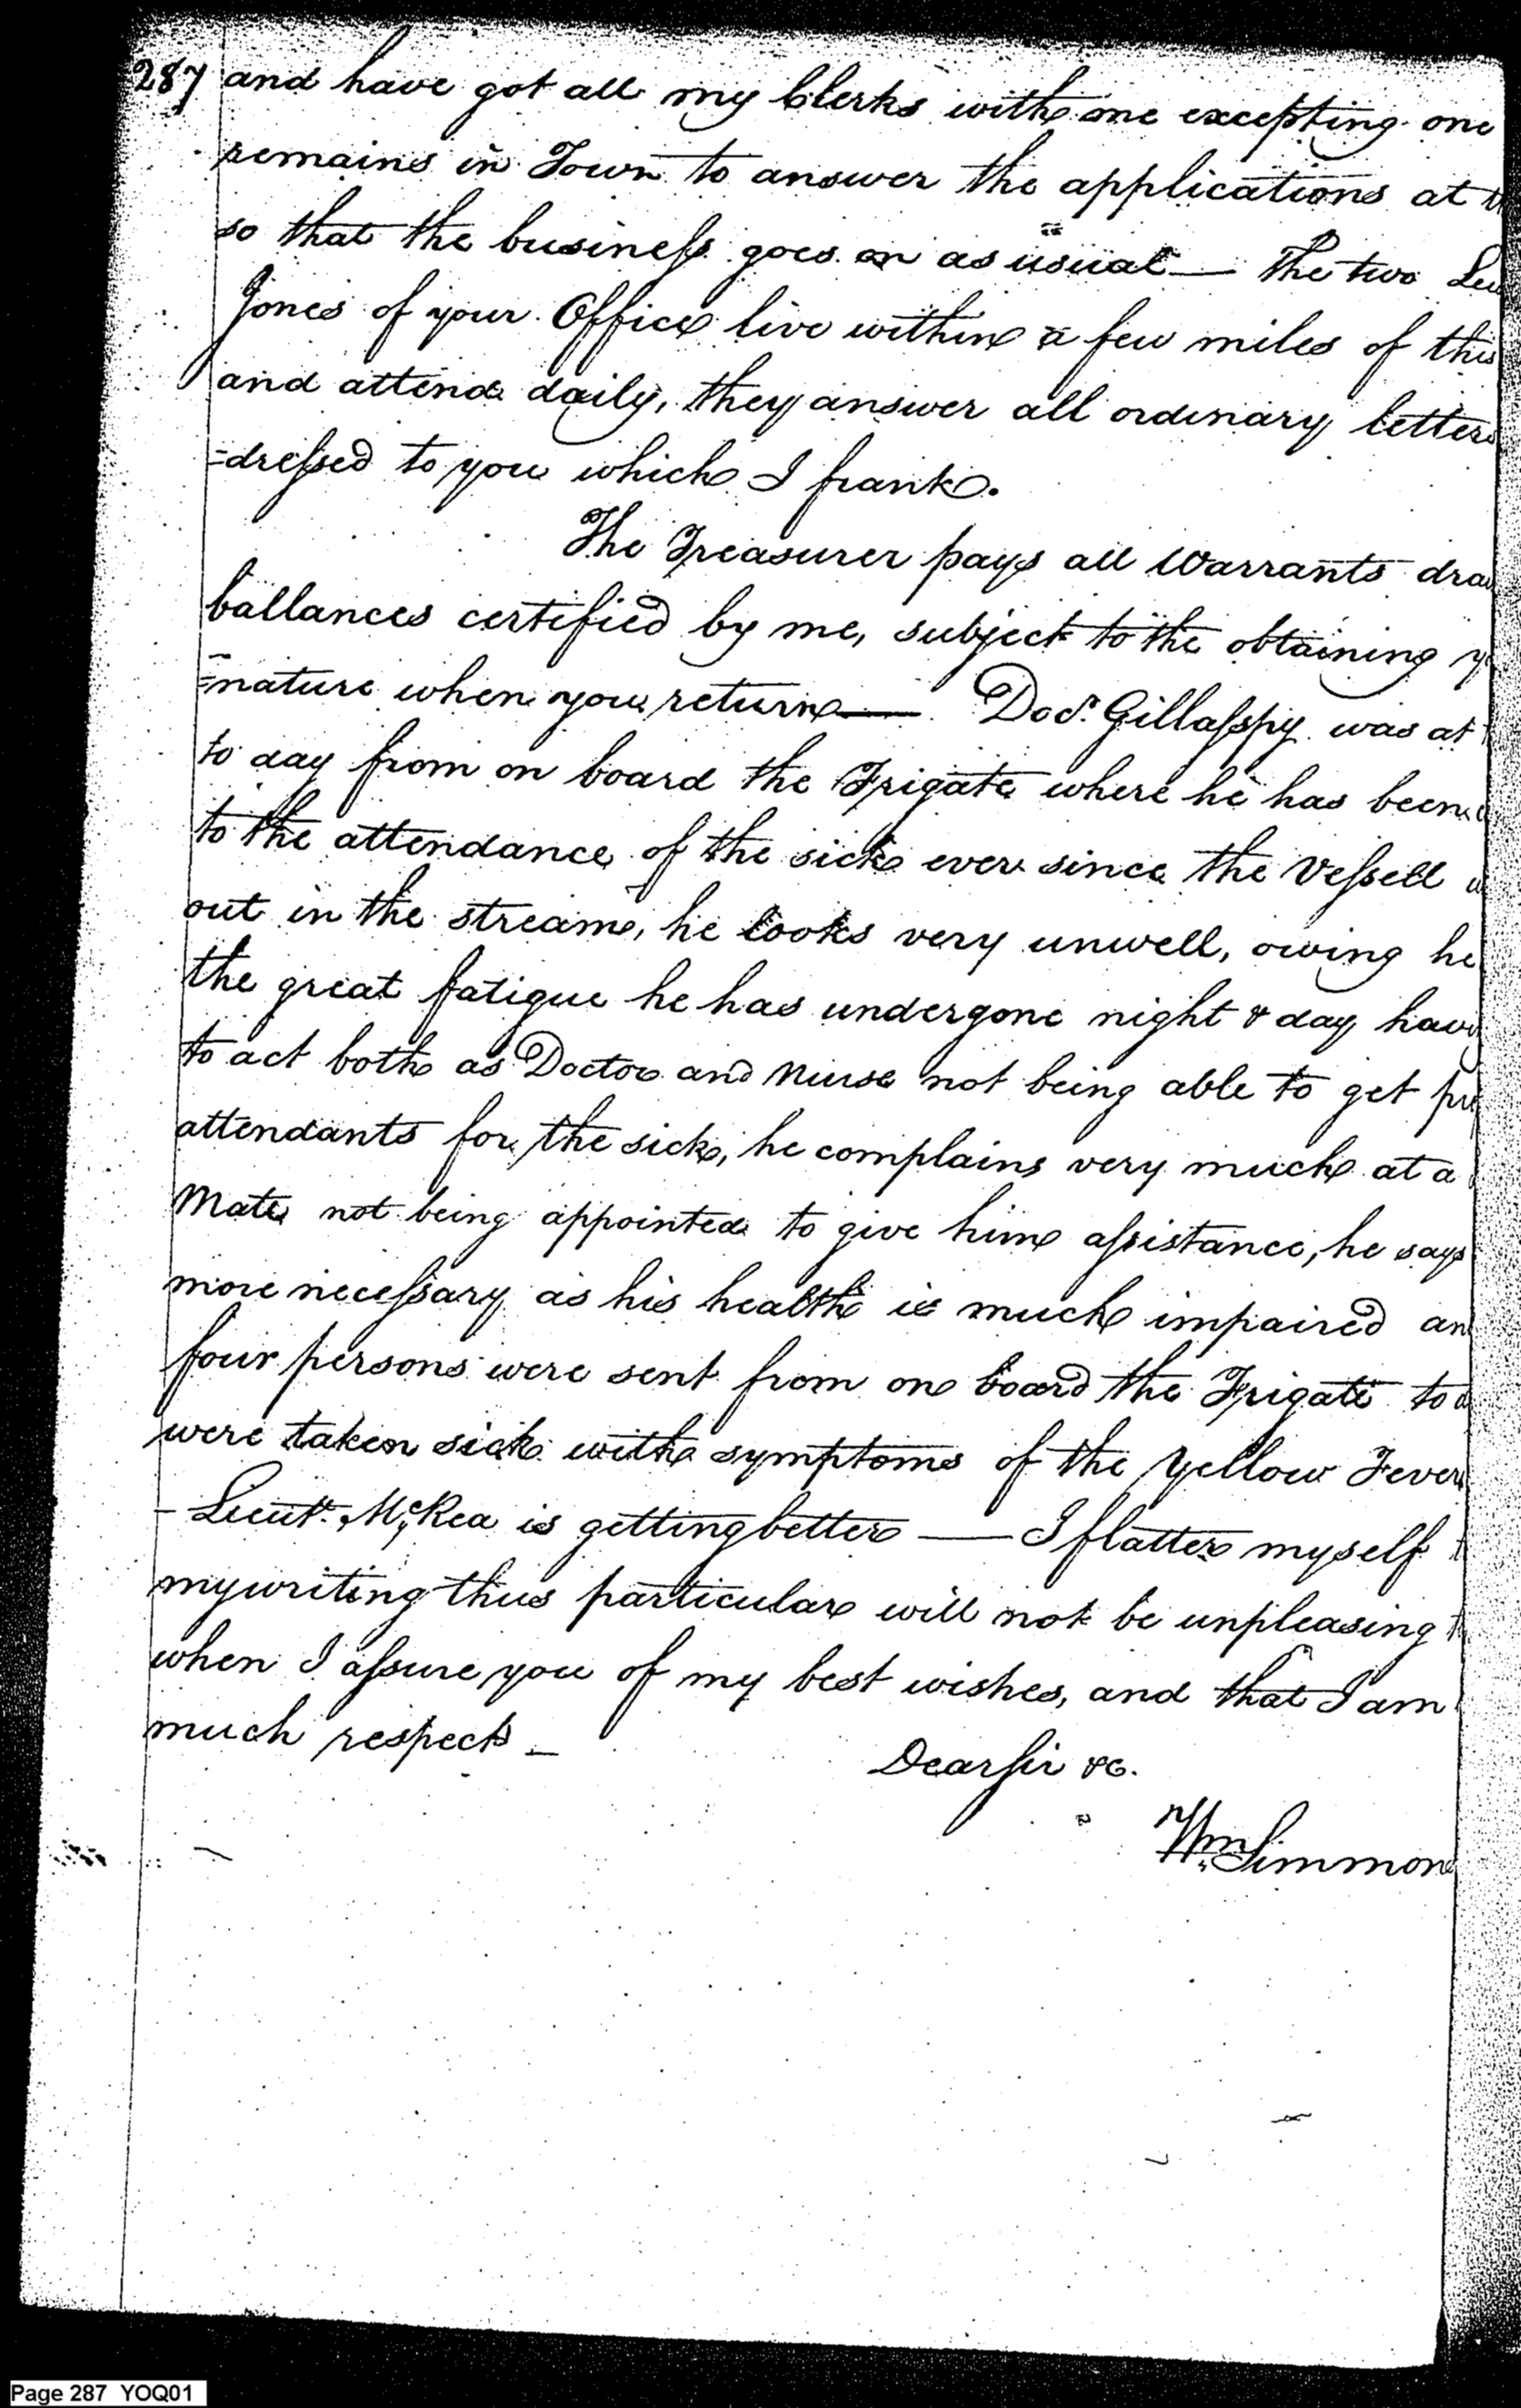 287 and have got all my Clerks with me excepting one
remains in Town to answer the applications at
so that the business goes on as usual — The two
Jones of your Office live within a few miles of this
and attend daily, they answer all ordinary letters
=dressed to you which I frank.
The Treasurer pays all Warrants
ballances certified by me, subject to the obtaining
=nature when you return — Docr. Gillasspy was at
to day from on board the Frigate where he has been
to the attendance of the sick ever since the Vessell
out in the stream, he looks very unwell, owing he
the great fatigue he has undergone night & day
to act both as Doctor and nurse not being able to get
attendants for the sick, he complains very much at a
Mate not being appointed to give him assistance, he says
more necessary as his health is much impaired
four persons were sent from on board the Frigate
were taken sick with symptoms of the Yellow Fever
- Lieut. McRea is getting better — I flatter myself
my writing thus particular will not be unpleasing
when I assure you of my best wishes, and that I am
much respect —
Dear Sir &c.
Wm. Simmon
Page 287 YOQ01